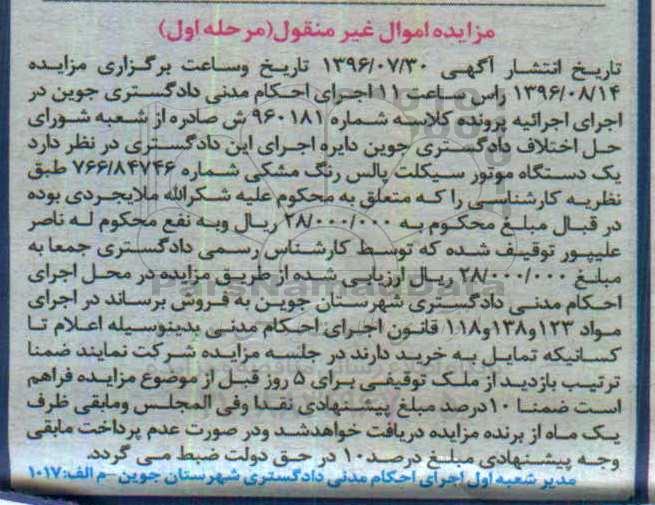 مزایده اموال غیر منقول(مرحله اول)
تاریخ انتشار آگهی ۱۳۹۶/۰۷/۳۰ تاریخ وساعت برگزاری مزایده
۱۳۹۶/۰۸/۱۴ راس ساعت ۱۱ اجرای احکام مدنی دادگستری جوین در
اجرای اجرائیه پرونده کلاسه شماره ۹۶۰۱۸۱ ش صادره از شعبه شورای
حل اختلاف دادگستری جوین دایره اجرای این دادگستری در نظر دارد
یک دستگاه موتور سیکلت پالس رنگ مشکی شماره ۷۶۶/۸۴۷۴۶ طبق
نظریه کارشناسی را که متعلق به محکوم علیه شکرالله ملایجردی بوده
در قبال مبلغ محکوم به ۲۸/۰۰۰/۰۰۰ ریال وبه نفع محکوم له ناصر
علیپور توقیف شده که توسط کارشناس رسمی دادگستری جمعا به
مبلغ ۲۸/۰۰۰/۰۰۰ ریال ارزیابی شده از طریق مزایده در محل اجرای
احکام مدنی دادگستری شهرستان جوین به فروش برساند در اجرای
مواد ۱۲۳و۱۳۸و۱۱۸ قانون اجرای احکام مدنی بدینوسیله اعلام تا
کسانیکه تمایل به خرید دارند در جلسه مزایده شرکت نمایند ضمنا
ترتیب بازدید از ملک توقیفی برای ۵ روز قبل از موضوع مزایده فراهم
است ضمنا ۱۰درصد مبلغ پیشنهادی نقدا وفی المجلس ومابقی ظرف
یک ماه از برنده مزایده دریافت خواهدشد ودر صورت عدم پرداخت مابقی
وجه پیشنهادی مبلغ درصد۱۰ در حق دولت ضبط می گردد.
مدیر شعبه اول اجرای احکام مدنی دادگستری شهرستان جوین-م الف:۱۰۱۷
ParsNamadData